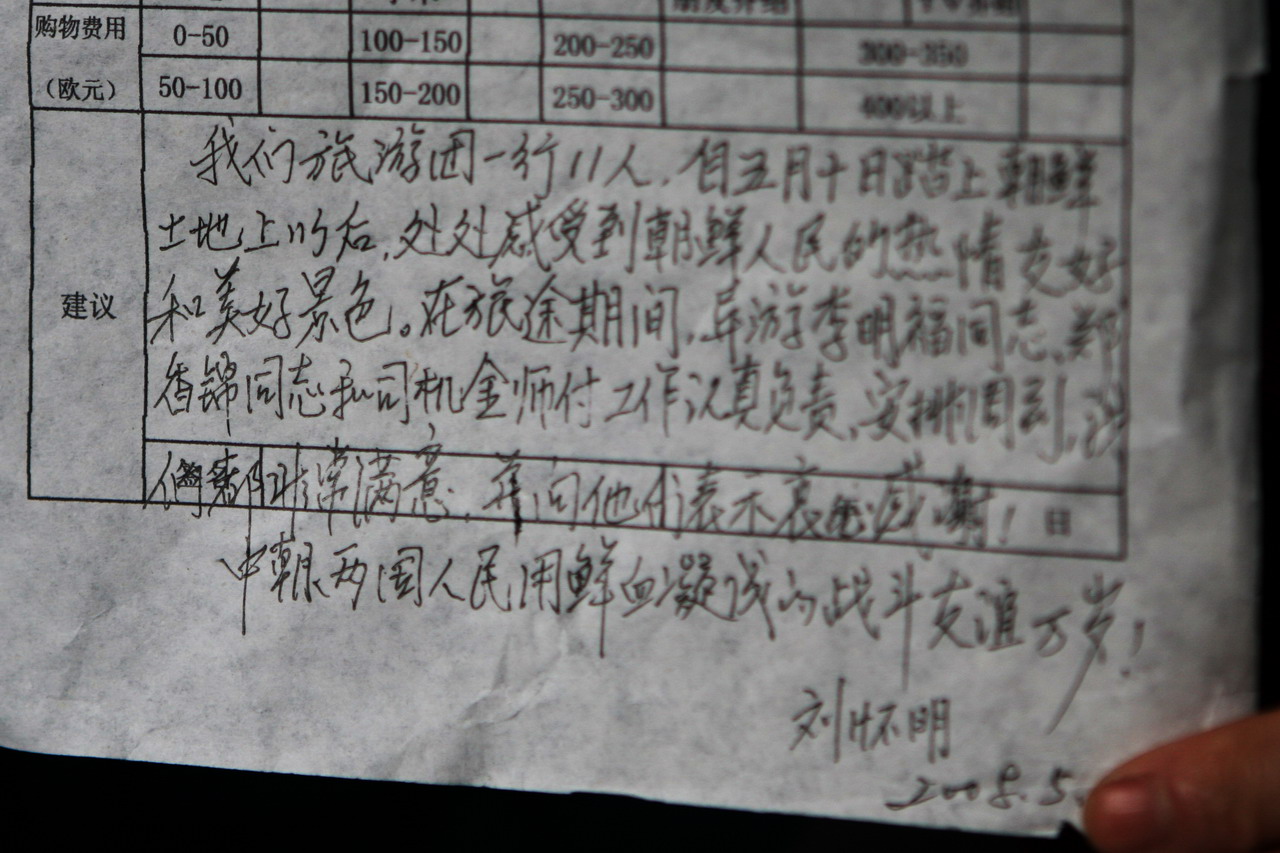 朋友介绍
购物费用 0-50 100-150 200-250 300-350
（欧元） 50-100 150-200 250-300 400以上
建议
我们旅游团一行11人，自五月十日踏上朝鲜
土地上以后，处处感受到朝鲜人民的热情友好
和美好景色。在旅途期间，导游李明福同志、郑
香锦同志和司机金师付工作认真负责，安排周到，我
们非常满意，并向他们表示衷心感谢！
日
中朝两国人民用鲜血凝成的战斗友谊万岁！
刘怀明
2008.5.